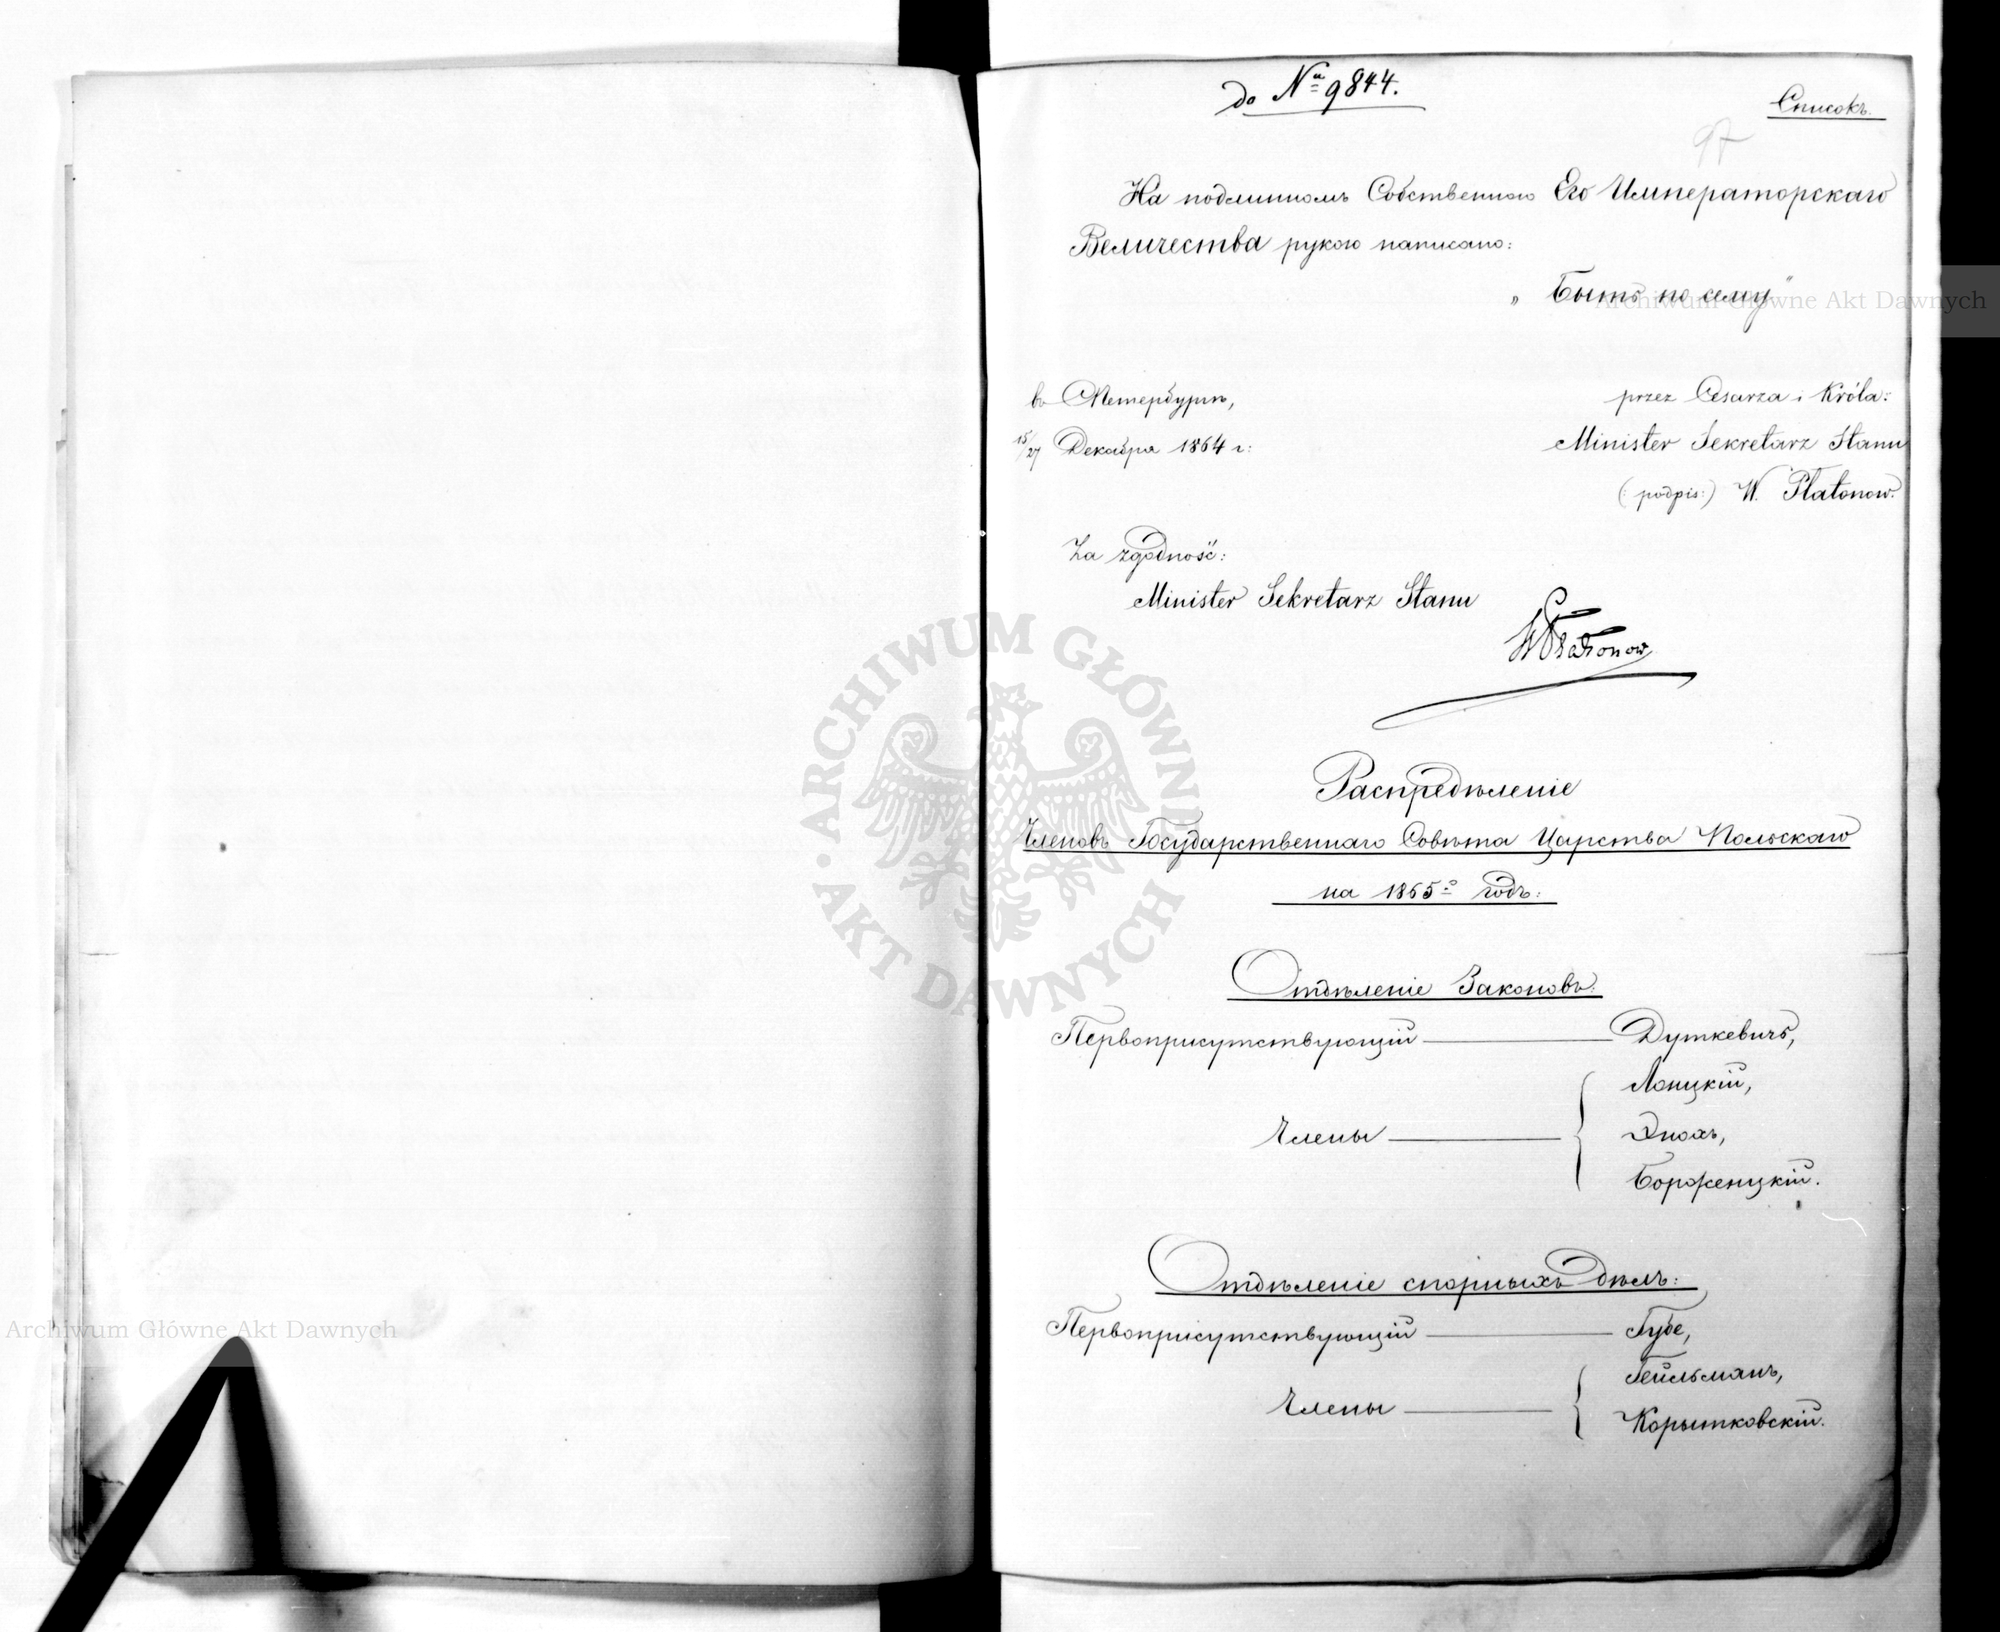 до № 9844.
Списокъ.
97
На подлинномъ Собственною Его Императорскаго
Величества рукою написано:
„Быть по сему"
въ С Петербургѣ,
15/27 Декабря 1864 г:
przez Cesarza i Króla:
Minister Sekretarz Stanu
(:podpis:) W. Płatonow.
Za zgodność:
Minister Sekretarz Stanu
W Płatonow
Распредѣленіе
Членовъ Государственнаго Совѣта Царства Польскаго
на 1865й годъ:
Отдѣленіе Законовъ:
Первоприсутствующій — Дуткевичъ,
Члены — Лонцкій,
Энохъ,
Борженцкій.
Отдѣленіе спорныхъ дѣлъ:
Первоприсутствующій — Губе,
Члены — Гейльманъ,
Корытковскій.
Archiwum Główne Akt Dawnych
ARCHIWUM GŁÓWNE • AKT DAWNYCH •
Archiwum Główne Akt Dawnych